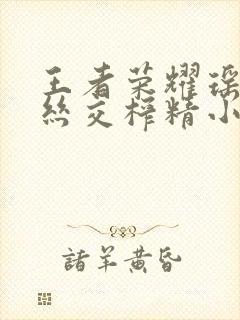 王者荣耀瑶
丝交榨精小
諸羊黄昏